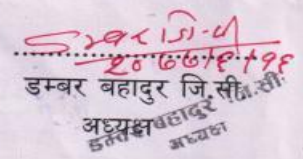 डम्बर जि.सी
२०७७।९।१६
डम्बर बहादुर जि.सी.
अध्यक्ष
डम्बर बहादुर जि.सी.
अध्यक्ष